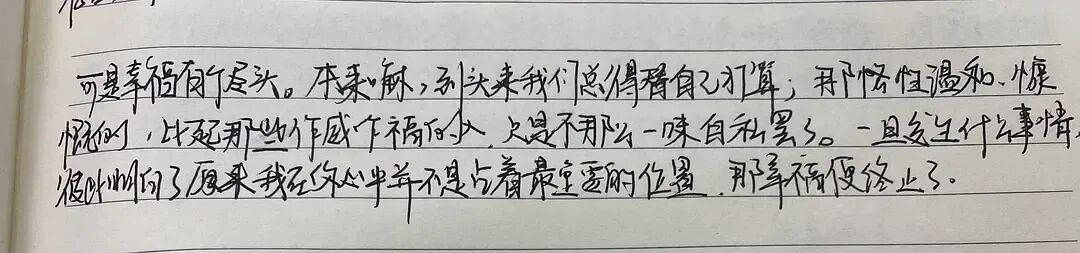 可是幸福有个尽头。本来嘛，到头来我们总得替自己打算；那个性温和、慷
慨的，比起那些作威作福的人，只是不那么一味自私罢了。一旦发生什么事情，
彼此明白了原来我在你心中并不是占着最重要的位置，那幸福便终止了。